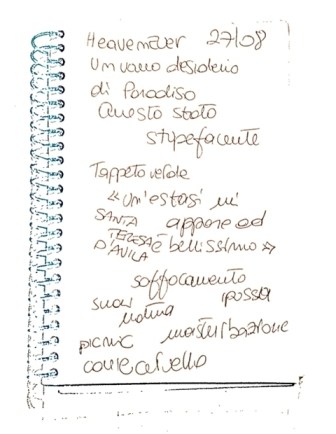 Heavemever 27/08
Un vano desiderio
di Paradiso
Questo stato
stupefacente
Tappeto verde
«Un'estasi mi
SANTA appare ed
TERESA è bellissimo»
D'AVILA
soffocamento
suoi ipossia
notina
masturbazione
picnic
come cervello